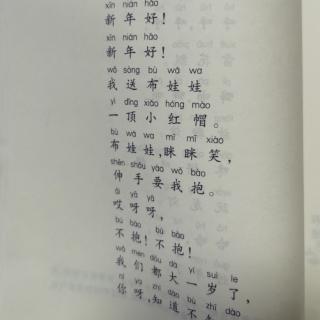 xīn nián hǎo
新年好！
xīn nián hǎo
新年好！
wǒ sòng bù wá wa
我送布娃娃
yì dǐng xiǎo hóng mào
一顶小红帽。
bù wá wa mī mī xiào
布娃娃，眯眯笑，
shēn shǒu yào wǒ bào
伸手要我抱。
āi yā yā
哎呀呀，
bù bào bù bào
不抱！不抱！
wǒ men dōu dà yí suì le
我们都大一岁了，
nǐ ya zhī dào bù zhī dào
你呀，知道不